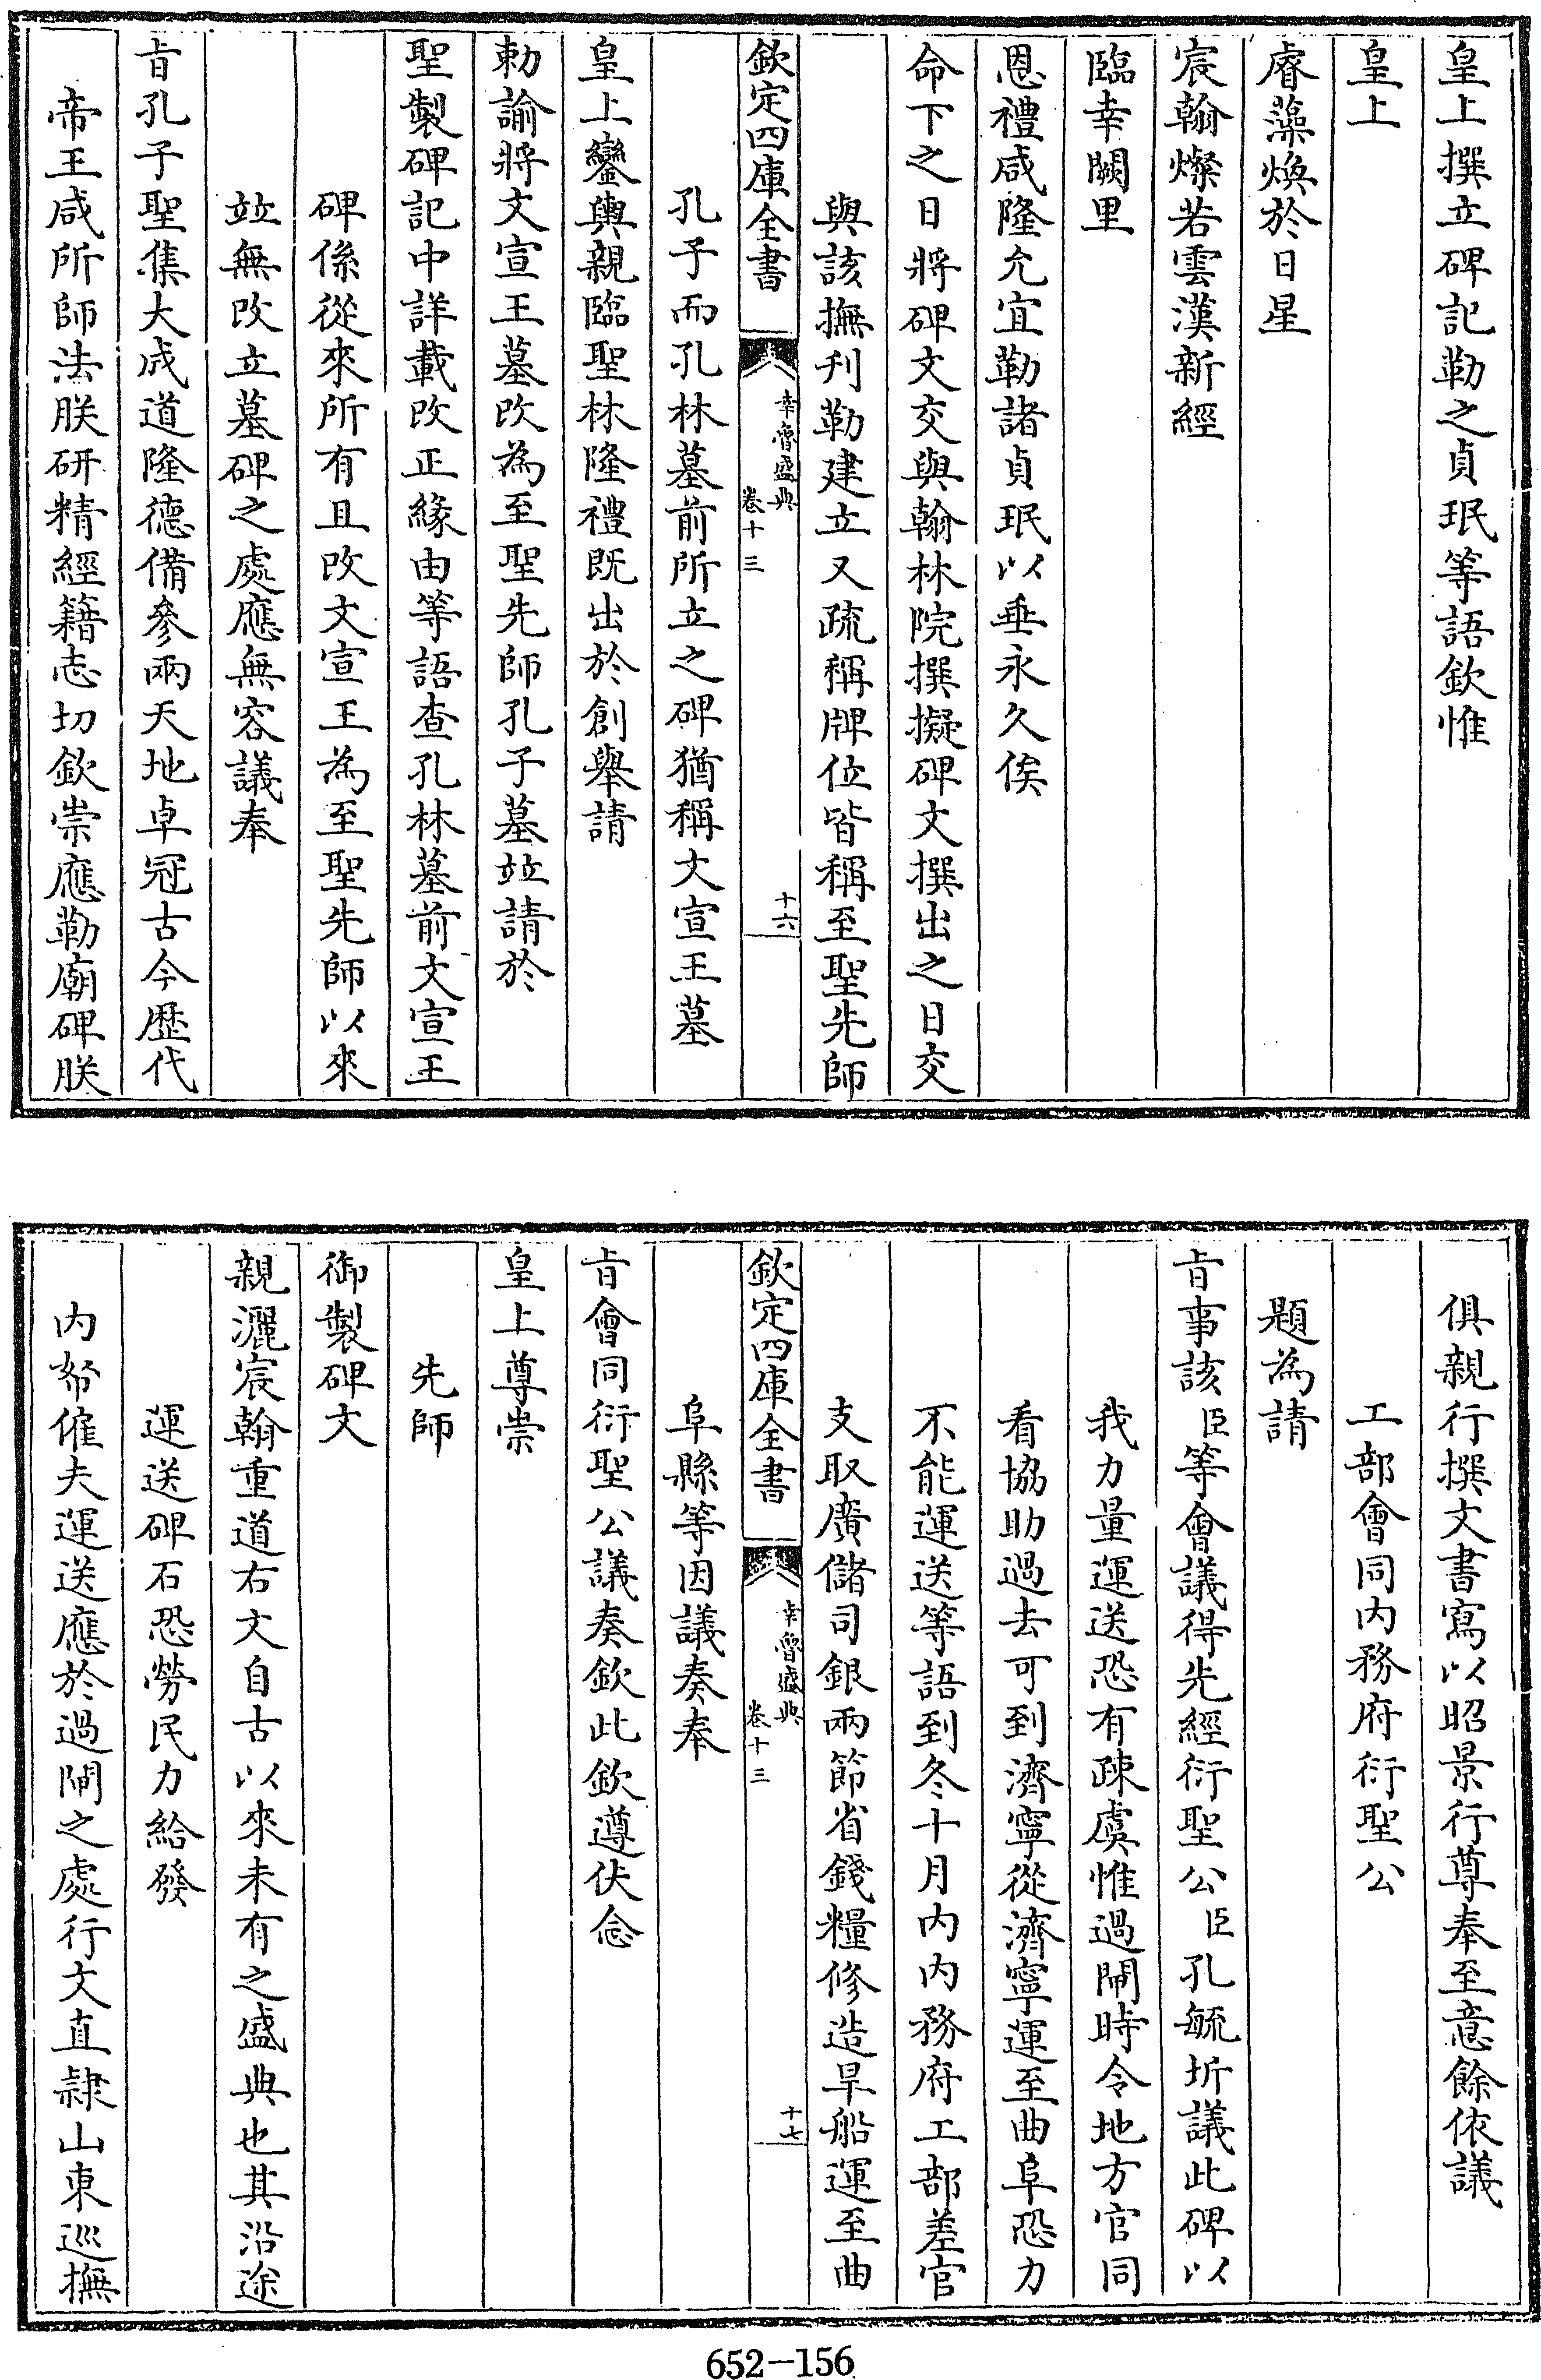 皇上撰立碑記勒之貞珉等語欽惟
皇上
睿藻煥於日星
宸翰燦若雲漢新經
臨幸闕里
恩禮咸隆允宜勒諸貞珉以垂永久俟
命下之日將碑文交與翰林院撰擬碑文撰出之日交
與該撫刋勒建立又疏稱牌位皆稱至聖先師
欽定四庫全書
幸魯盛典
卷十三
十六
孔子而孔林墓前所立之碑猶稱文宣王墓
皇上鑾輿親臨聖林隆禮既出於創舉請
勅諭將文宣王墓改為至聖先師孔子墓竝請於
聖製碑記中詳載改正緣由等語查孔林墓前文宣王
碑係從來所有且改文宣王為至聖先師以來
竝無改立墓碑之處應無容議奉
㫖孔子聖集大成道隆德備參兩天地卓冠古今歷代
帝王咸所師法朕研精經籍志切欽崇應勒廟碑朕
俱親行撰文書寫以昭景行尊奉至意餘依議
工部會同内務府衍聖公
題為請
㫖事該臣等會議得先經衍聖公臣孔毓圻議此碑以
我力量運送恐有疎虞惟過閘時令地方官同
看協助過去可到濟寧從濟寧運至曲阜恐力
不能運送等語到冬十月内内務府工部差官
支取廣儲司銀兩節省錢糧修造旱船運至曲
欽定四庫全書
幸魯盛典
卷十三
十七
阜縣等因議奏奉
㫖會同衍聖公議奏欽此欽遵伏念
皇上尊崇
先師
御製碑文
親灑宸翰重道右文自古以來未有之盛典也其沿途
運送碑石恐勞民力給發
内帑僱夫運送應於過閘之處行文直隸山東巡撫
652—156